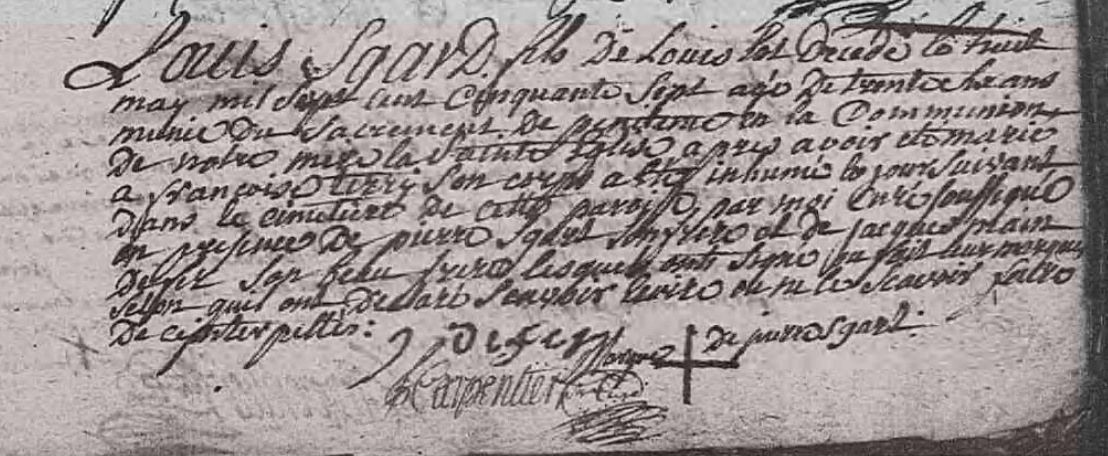 Louis Sgard. fils De Louis est decedé le huit
may mil sept cent cinquante sept agé De trente ans
munie Du Sacrement De penitence en la Communion
De notre mere la Sainte Eglise apres avoir eté marié
a françoise son corps a eté inhumé le jour suivant
Dans le cimetiere de cette paroisse par moi Curé soussigné
en presence De pierre Sgart son frere et de jacques
son beau frere lesquels ont signé ou fait leur marque
selon quil ont Declaré Scavoir ecrire ou ne le Scavoir
De ce interpellés:
marque De pierre Sgart.
Carpentier